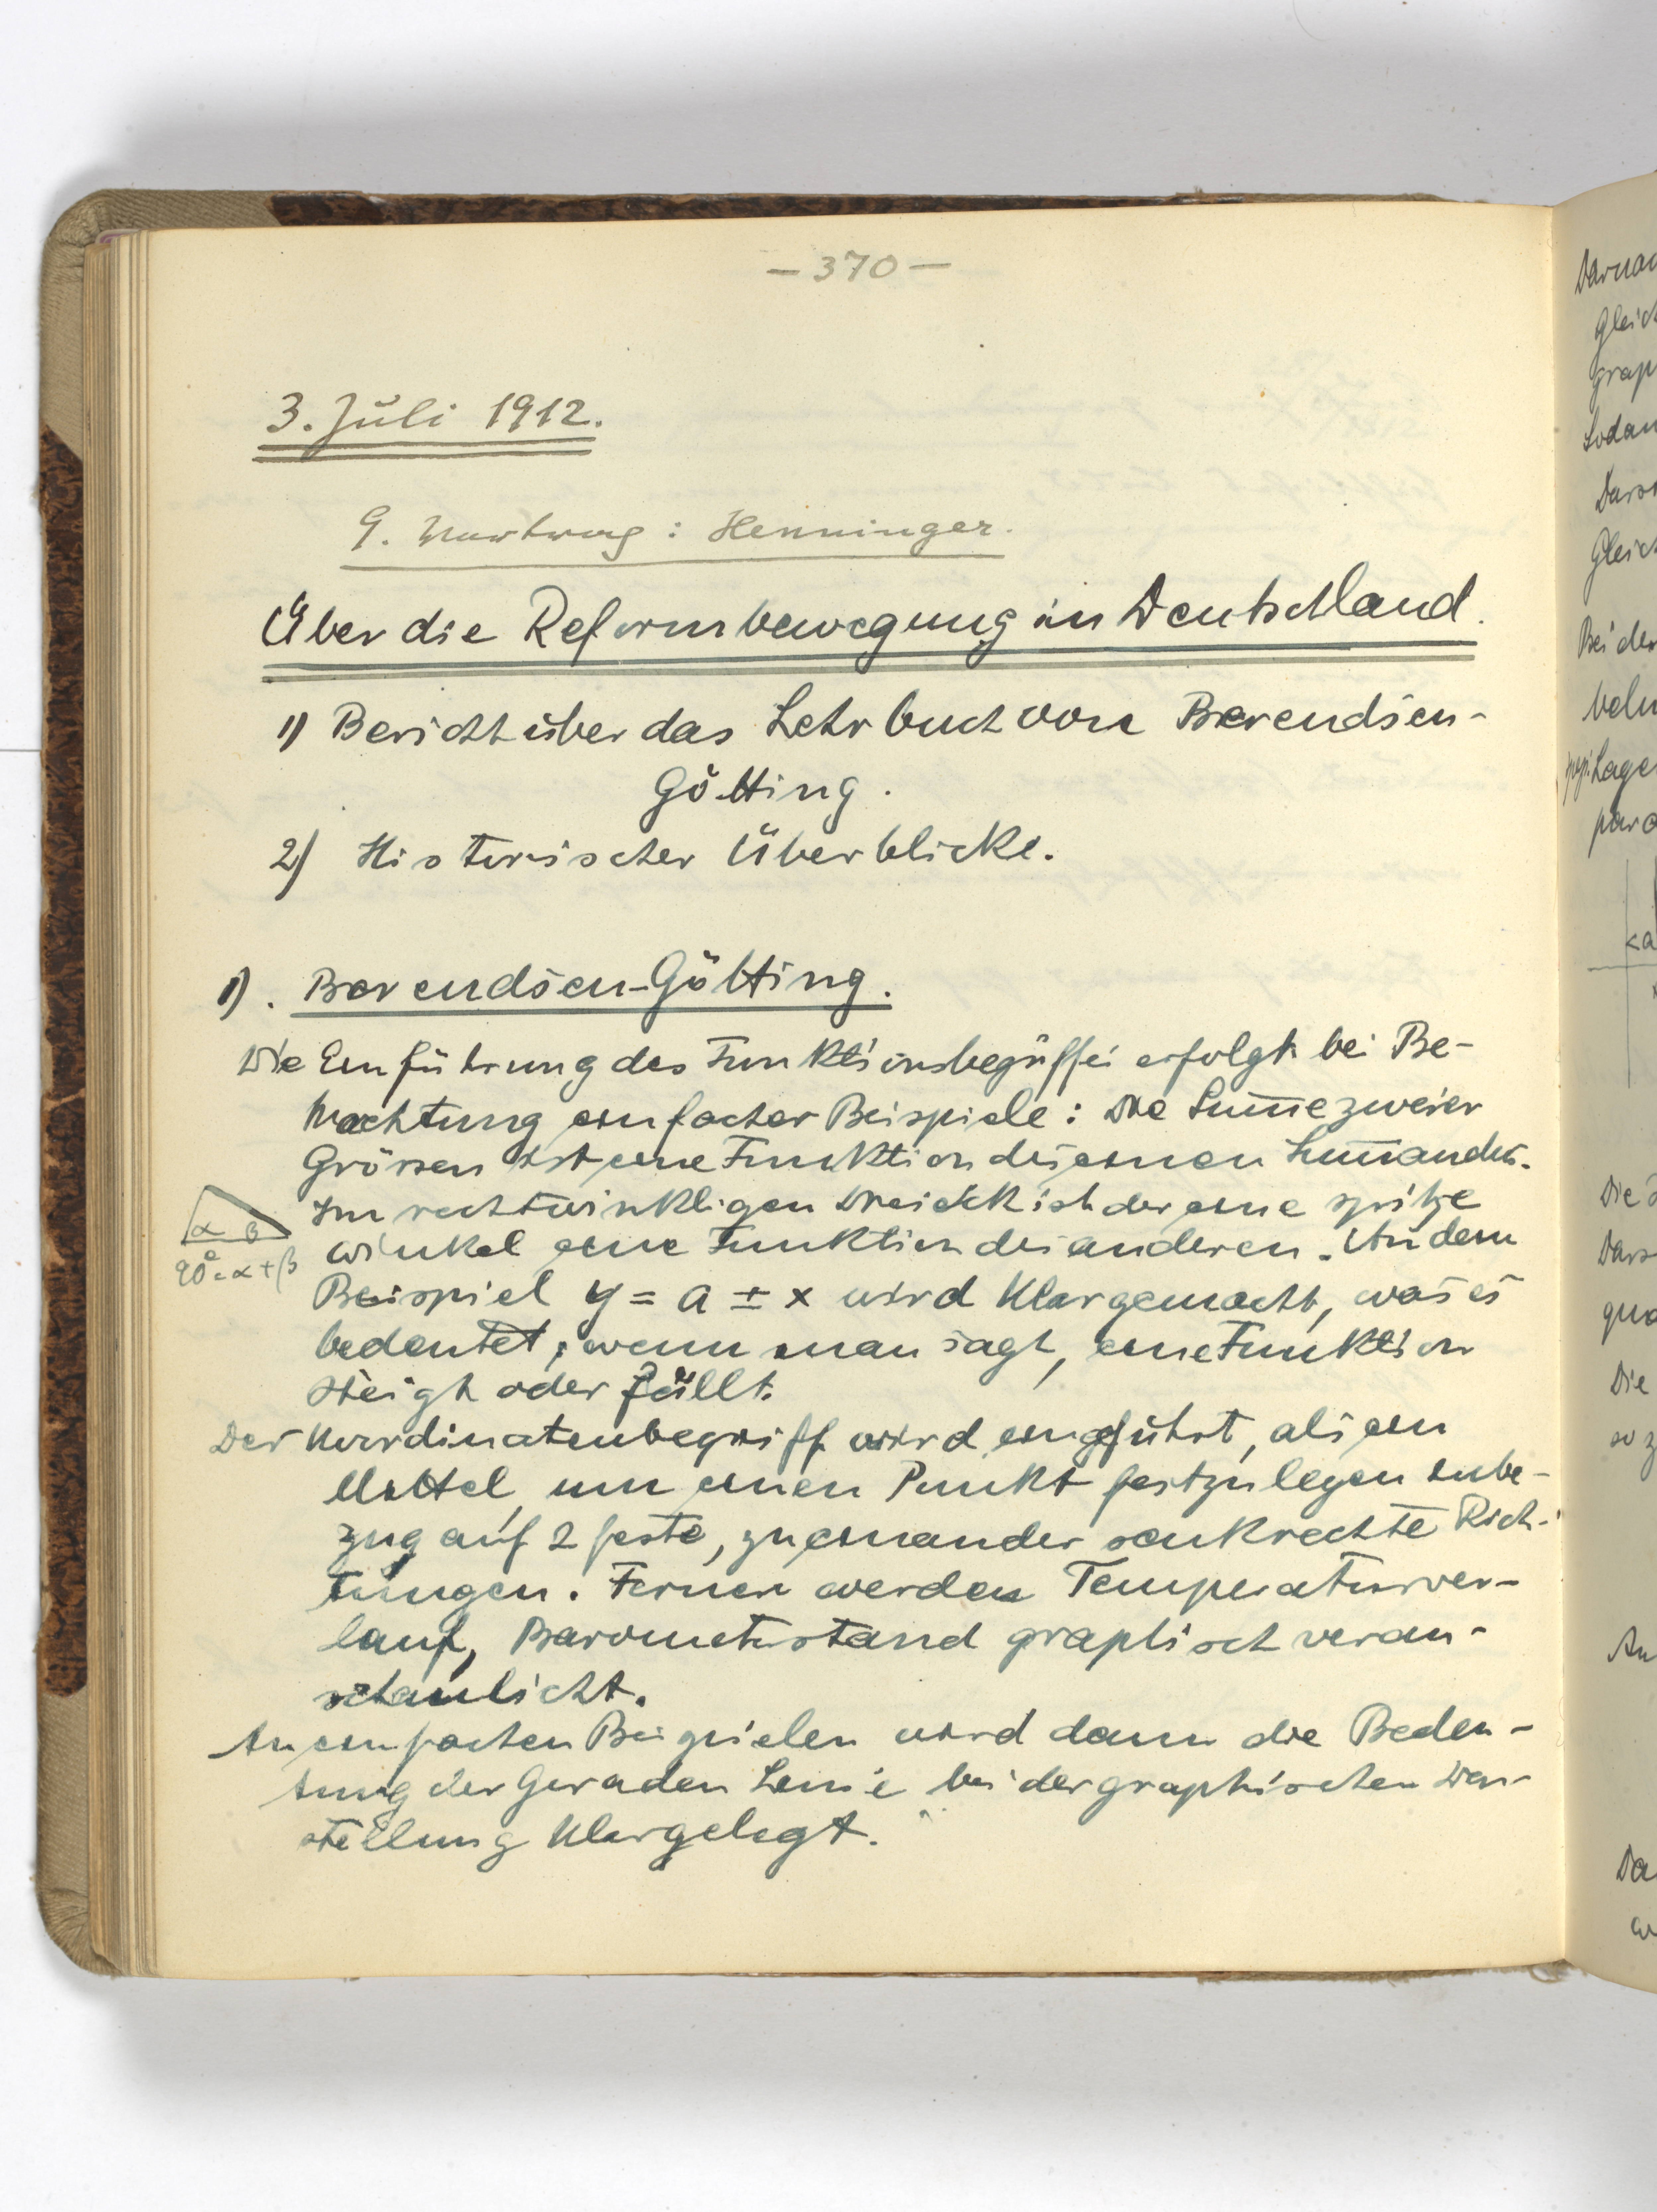 – 370 –
3. Juli 1912.
9. Vortrag: Henninger.
Über die Reformbewegung in Deutschland.
1) Bericht über das Lehrbuch von Berendsen-
Götting.
2) Historischer Überblick.
1). Berendsen-Götting.
Die Einführung des Funktionsbegriffs erfolgt bei Be-
trachtung einfacher Beispiele: Die Sum̅e zweier
Grössen ist eine Funktion des einen Sum̅anden.
Im rechtwinkligen Dreieck ist der eine spitze
α β
90° = α + β
Winkel eine Funktion des anderen. An dem
Beispiel y = a ± x wird klargemacht, was es
bedeutet, wenn man sagt, eine Funktion
steigt oder fällt.
Der Koordinatenbegriff wird eingeführt, als ein
Mittel, um einen Punkt festzulegen inbe-
zug auf 2 feste, zueinander senkrechte Rich-
tungen. Ferner werden Temperaturver-
lauf, Barometerstand graphisch veran-
schaulicht.
An einfachen Beispielen wird dann die Bedeu-
tung der Geraden Linie bei der graphischen Dar-
stellung klargelegt.
Bei der
Lage
Die
Die